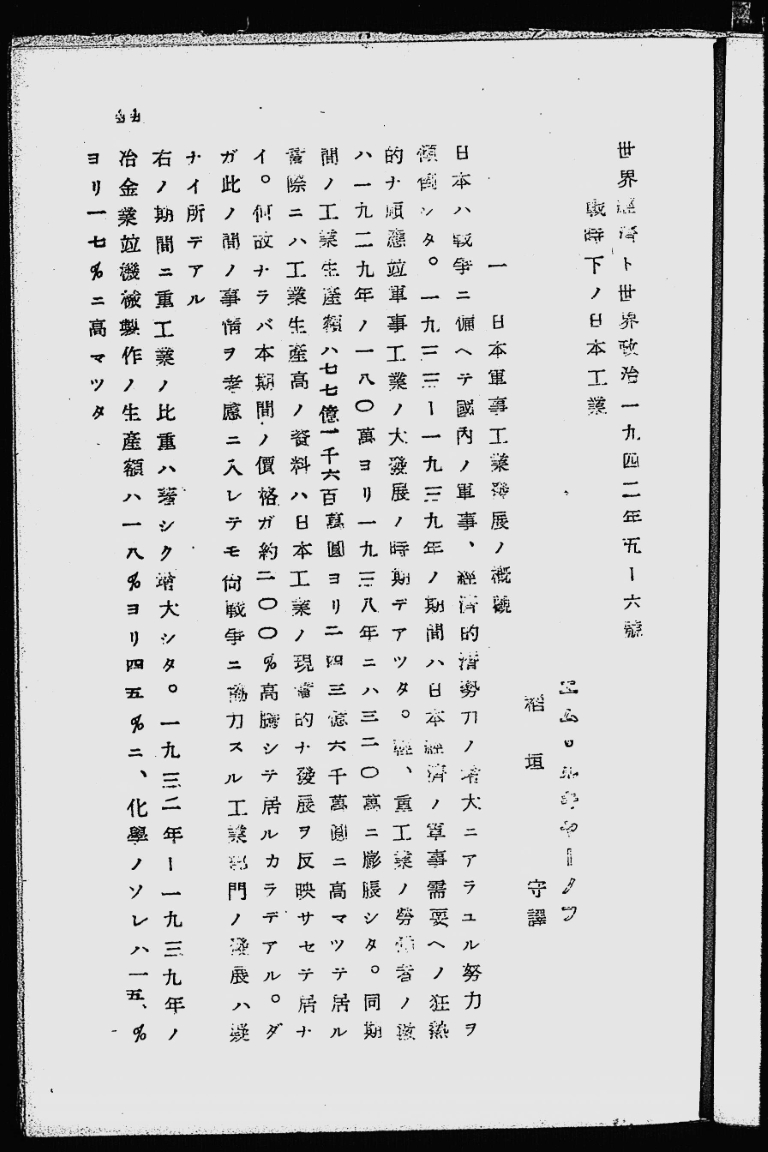 世界經濟ト世界政治一九四二年五ー六號
戰時下ノ日本工業
エム・ルキヤーノフ
稻垣 守譯
一 日本軍事工業發展ノ概觀
日本ハ戰爭ニ備ヘテ國內ノ軍事、經濟的情勢力ノ增大ニアラユル努力ヲ
傾倒シタ。一九三二ー一九三九年ノ期間ハ日本經濟ノ軍事需要ヘノ狂熱
的ナ順應竝軍事工業ノ大發展ノ時期デアツタ。輕、重工業ノ勞働者ノ數
ハ一九二九年ノ一八〇萬ヨリ一九三八年ニハ三二〇萬ニ膨脹シタ。同期
間ノ工業生產額ハ七七億一千六百萬圓ヨリ二四三億六千萬圓ニ高マツテ居ル
實際ニハ工業生產高ノ資料ハ日本工業ノ現實的ナ發展ヲ反映サセテ居ナ
イ。何故ナラバ本期間ノ價格ガ約二〇〇%高騰シテ居ルカラデアル。ダ
ガ此ノ間ノ事情ヲ考慮ニ入レテモ尙戰爭ニ協力スル工業部門ノ發展ハ疑
ナイ所デアル
右ノ期間ニ重工業ノ比重ハ著シク增大シタ。一九三二年ー一九三九年ノ
冶金業竝機械製作ノ生產額ハ一八%ヨリ四五%ニ、化學ノソレハ一五、%
ヨリ一七%ニ高マツタ